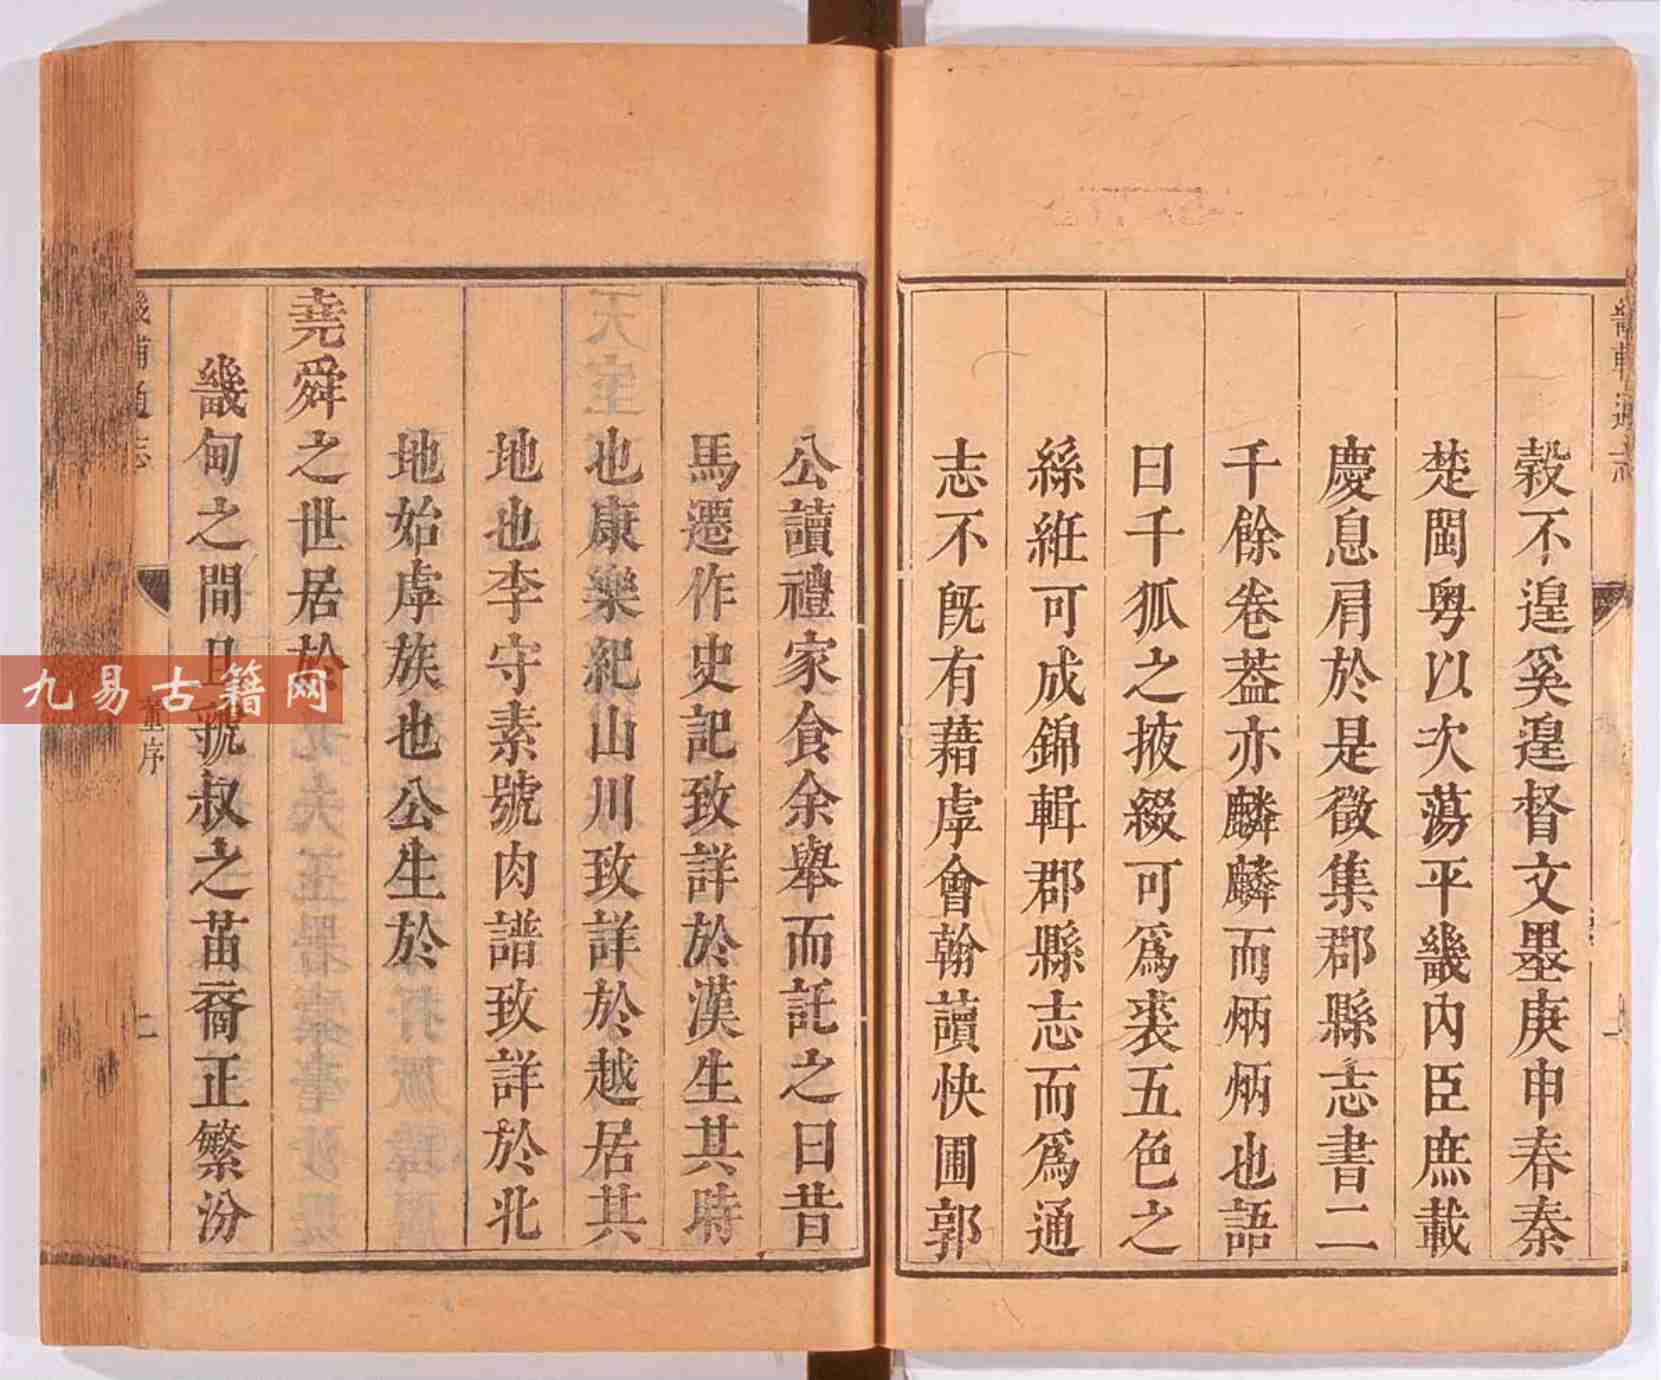 穀不遑奚遑督文墨庚申春秦
楚閩粤以次蕩平畿內臣庶載
慶息肩於是徵集郡縣志書二
千餘卷葢亦麟麟而炳炳也語
曰千狐之掖綴可爲裘五色之
絲維可成錦輯郡縣志而爲通
志不既有藉虖會翰讀快圃郭
公讀禮家食余舉而託之曰昔
馬遷作史記致詳於漢生其時
也康樂紀山川致詳於越居其
地也李守素號肉譜致詳於北
地始虖族也公生於
堯舜之世居於
畿甸之間且虢叔之苗裔正繁汾
畿輔通志
董序
二
九易古籍网